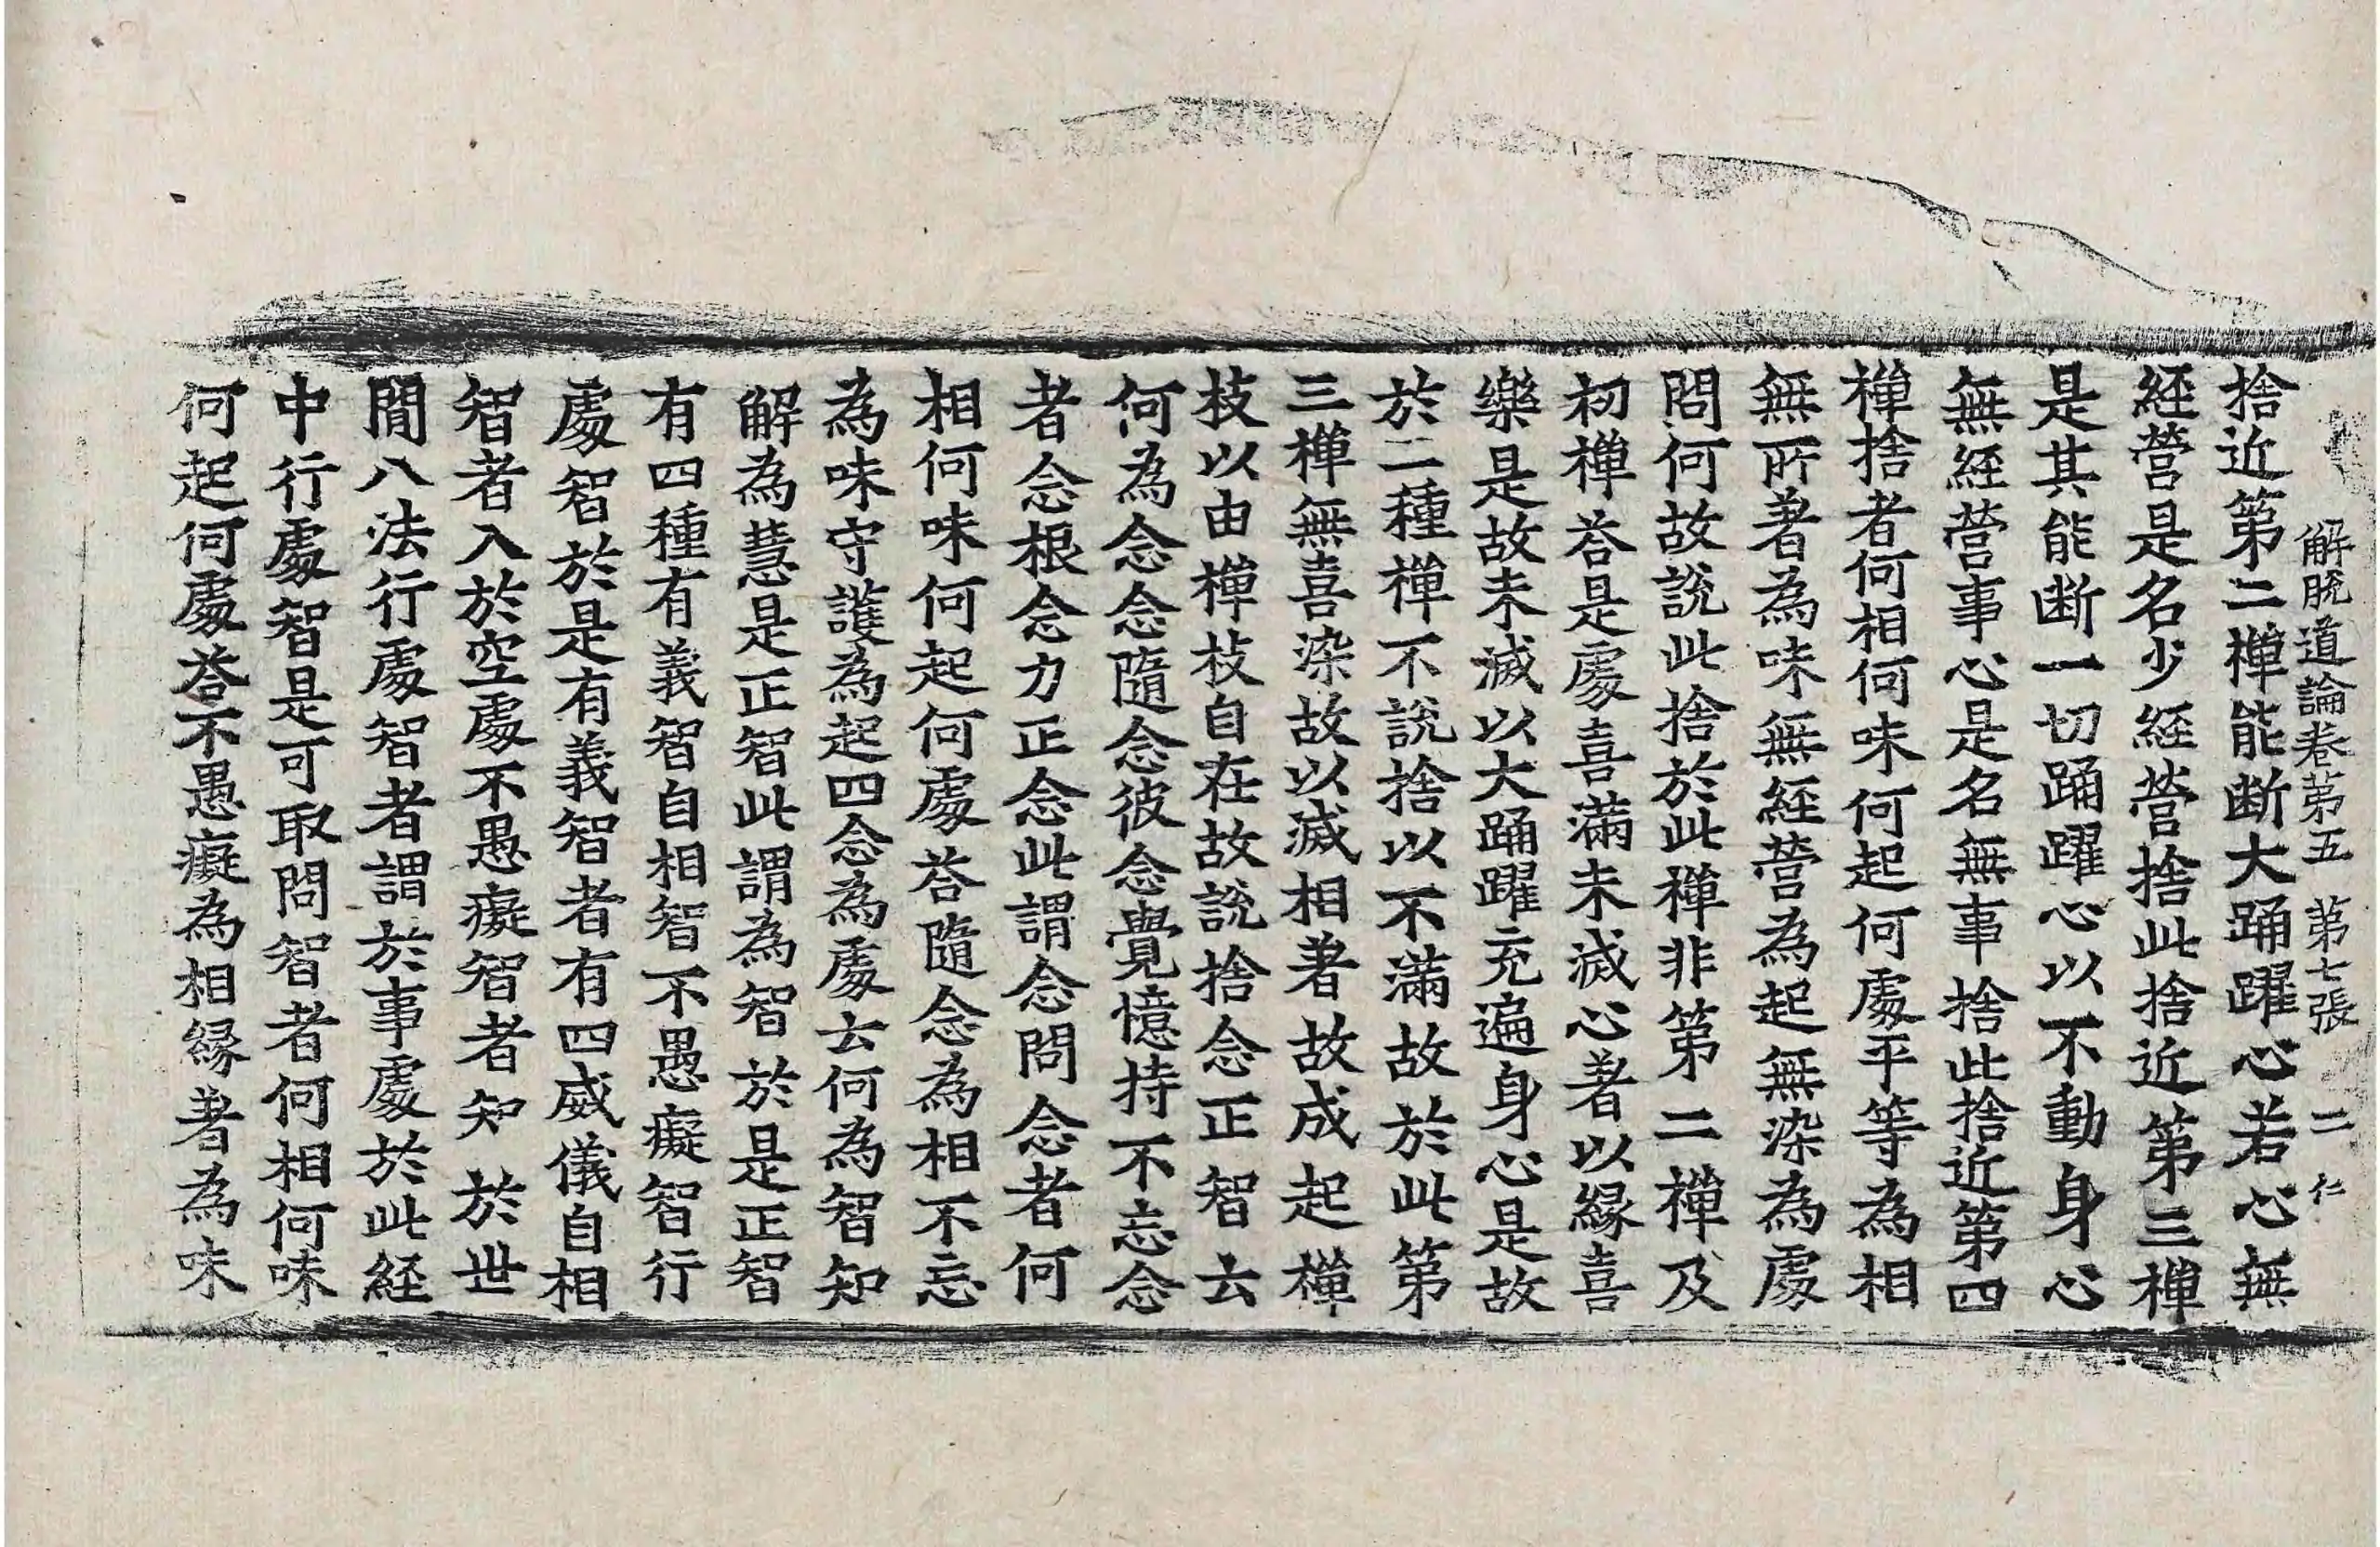 解脫道論卷第五 第七張 二 仁
捨近第二禅能断大踊躍心若心無
経營是名少経營捨此捨近第三禅
是其能断一切踊躍心以不動身心
無経營事心是名無事捨此捨近第四
禅捨者何相何味何起何處平等為相
無所著為味無経營為起無染為處
問何故說此捨於此禅非第二禅及
初禅荅是處喜滿未滅心著以縁喜
樂是故未滅以大踊躍充遍身心是故
於二種禅不說捨以不滿故於此第
三禅無喜染故以滅相著故成起禅
枝以由禅枝自在故說捨念正智云
何為念念隨念彼念覺憶持不忘念
者念根念力正念此謂念問念者何
相何味何起何處荅隨念為相不忘
為味守護為起四念為處云何為智知
解為慧是正智此謂為智於是正智
有四種有義智自相智不愚癡智行
處智於是有義智者有四威儀自相
智者入於空處不愚癡智者知於世
間八法行處智者謂於事處於此経
中行處智是可取問智者何相何味
何起何處荅不愚癡為相縁著為味